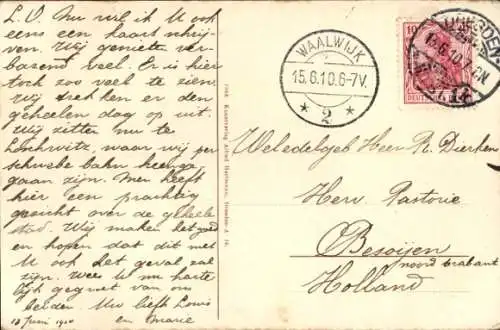 L.O. Nu wil ik U ook
eens een kaart schrij-
ven. Wij genieten ver-
bazend veel. Er is hier
toch zoo veel te zien.
Wij trekken er den
geheelen dag op uit.
Wij zitten nu te
Loschwitz, waar wij per
schwebe bahn heenge
gaan zijn. Men heeft
hier een prachtig
gezicht over de geheele
stad. Wij maken het goed
en hopen dat dit met
U ook het geval zal
zijn. Wees U nu harte
lijk gegroet van ons
beiden. Uw liefh Louis
13 Juni 1910 en Marie
Kunstverlag Alfred Hartmann, Dresden-A. 16.
WAALWIJK
15.6.10.6-7V.
* 2 *
10
DEUTSCHES
13.6.10.7-8N
Weledelgeb Heer R. Dierken
Herv. Pastorie
Besoijen
noord brabant
Holland